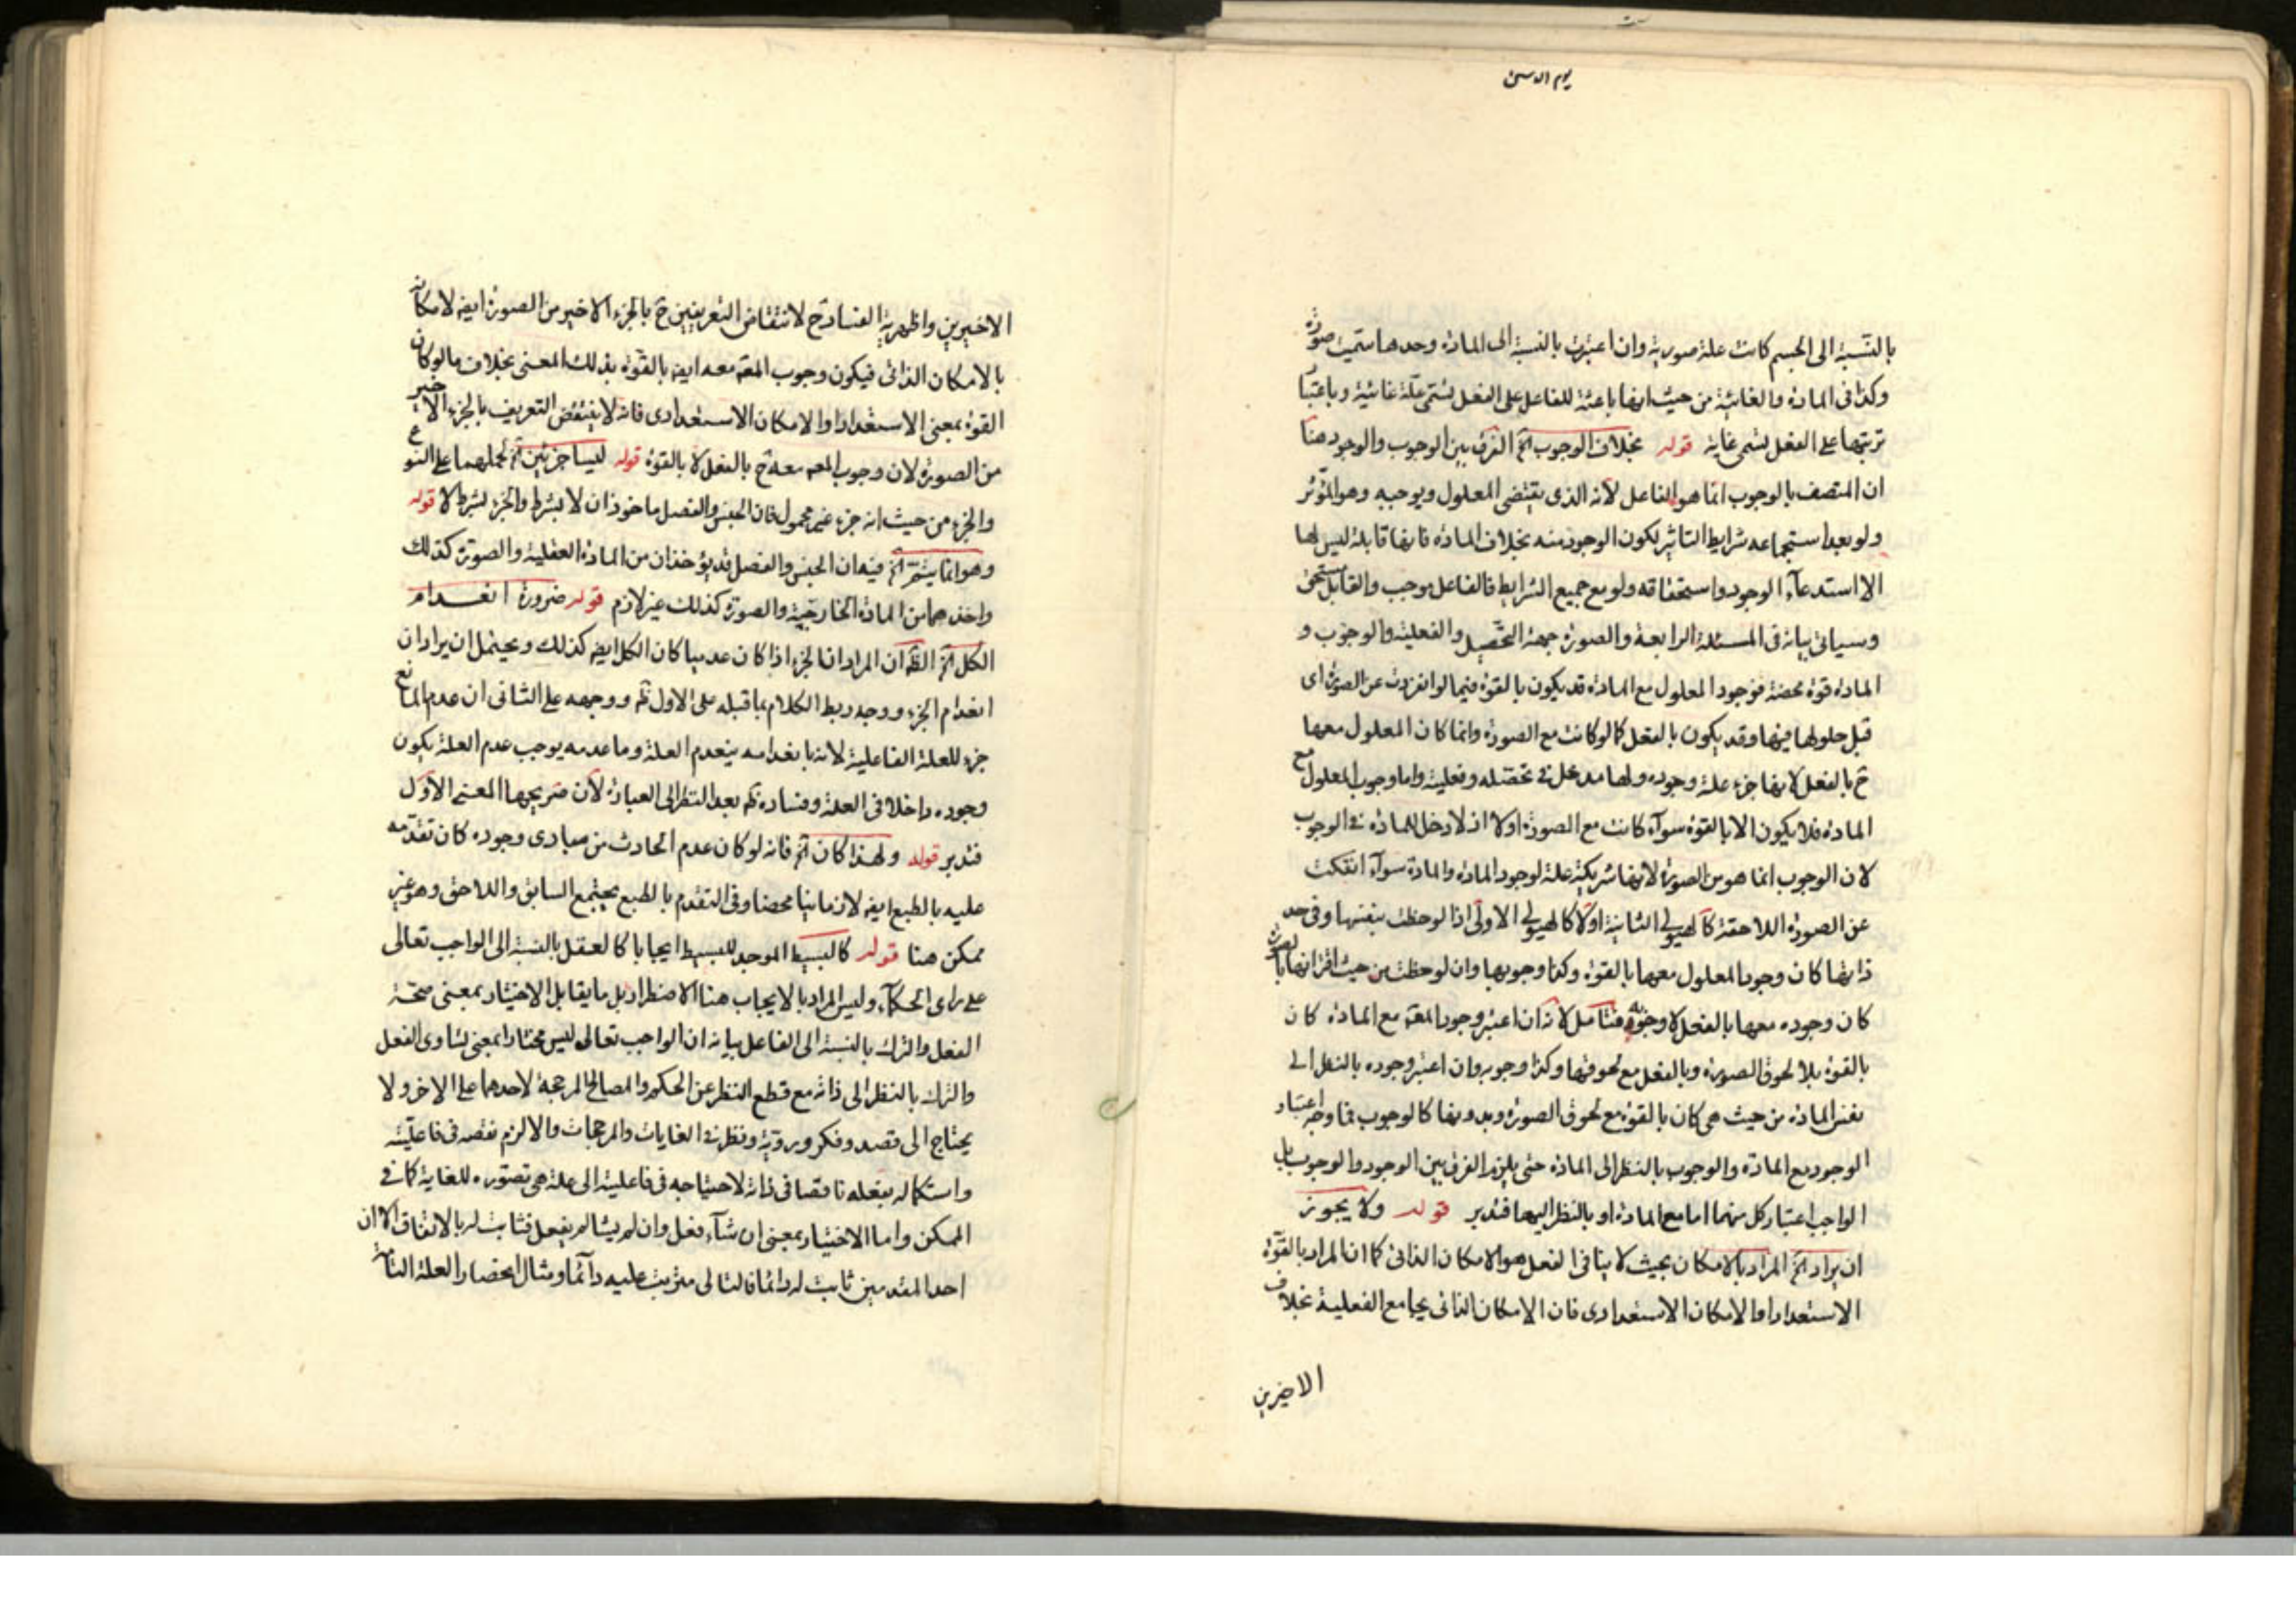 بالنسبة الى الجسم كانت علة صورية وان اعتبرت بالنسبة الى المادة وحدها سميت صورة
وكذا فى المادة والغائية من حيث انها باعثة للفاعل على الفعل تسمى علة غائية وباعتبار
ترتبها على الفعل تسمى غاية قوله بخلاف الوجوب آه الفرق بين الوجوب والوجود هنا
ان المتصف بالوجوب انما هو الفاعل لانه الذى يقتضى المعلول ويوجبه وهو المؤثر
ولو بعد استجماعه شرايط التاثير لكون الوجود منه بخلاف المادة فانها قابلة ليس لها
الا استدعآء الوجود واستحقاقه ولو مع جميع الشرايط فالفاعل موجب والقابل مستحق
وسياتى بيانه فى المسئلة الرابعة والصورة جهة التحصيل والفعلية والوجوب و
المادة قوة محضة فوجود المعلول مع المادة قد يكون بالقوة فيما لو انفردت عن الصورة اى
قبل حلولها فيها وقد يكون بالفعل كما لو كانت مع الصورة وانما كان المعلول معها
ح بالفعل لانها جزء علة وجوده ولها مدخل فى تحصله وفعليته واما وجوب المعلول مع
المادة فلا يكون الا بالقوة سوآء كانت مع الصورة اولا اذ لا دخل للمادة فى الوجوب
لان الوجوب انما هو من الصورة لانها شريكة علة لوجود المادة والمادة سوآء انفكت
عن الصورة اللاحقة كالهيولى الثانية اولا كالهيولى الاولى اذا لوحظت بنفسها وفى حد
ذاتها كان وجود المعلول معها بالقوة وكذا وجوبها وان لوحظت من حيث اقترانها بالصورة
كان وجوده معها بالفعل لا وجوبه فتامل لانه ان اعتبر وجود المعه مع المادة كان
بالقوة بلا لحوق الصورة وبالفعل مع لحوقها وكذا وجوبه وان اعتبر وجوده بالنظر الى
نفس المادة من حيث هى كان بالقوة مع لحوق الصورة وبدونها كالوجوب فما وجه اعتبار
الوجود مع المادة والوجوب بالنظر الى المادة حتى يلزم الفرق بين الوجود والوجوب بل
الواجب اعتبار كل منهما اما مع المادة او بالنظر اليها فتدبر قوله ولا يجوز
ان يراد آه المراد بالامكان بحيث لا ينافى الفعل هو الامكان الذاتى كما ان المراد بالقوة
الاستعداد او الامكان الاستعدادى فان الامكان الذاتى يجامع الفعلية بخلاف
الاخيرين
الاخيرين واظهرية الفساد ح لانتقاض التعريفين ح بالجزء الاخير من الصورة ايضه لامكانه
بالامكان الذاتى فيكون وجوب المعه معه ايضه بالقوة بذلك المعنى بخلاف ما لو كان
القوة بمعنى الاستعداد او الامكان الاستعدادى فانه لا ينتقض التعريف بالجزء الاخير
من الصورة لان وجوب المعه معه ح بالفعل لا بالقوة قوله ليسا جزئين آه لحملهما على النوع
والجزء من حيث انه جزء غير محمول فان الجنس والفصل ماخوذان لا بشرط والجزء بشرط لا قوله
وهو انما يتم آه فيه ان الجنس والفصل قد يؤخذان من المادة العقلية والصورة كذلك
واخذهما من المادة الخارجية والصورة كذلك غير لازم قوله ضرورة انعدام
الكل آه الظه ان المراد ان الجزء اذا كان عدميا كان الكل ايضه كذلك ويحتمل ان يراد ان
انعدام الجزء ووجه ربط الكلام بما قبله على الاول ظه ووجهه على الثانى ان عدم المانع
جزء للعلة الفاعلية لانه بانعدامه ينعدم العلة وما عدمه يوجب عدم العلة يكون
وجوده داخلا فى العلة وفساده ظه بعد النظر الى العبارة لان صريحها المعنى الاول
فتدبر قوله ولهذا كان آه فانه لو كان عدم الحادث من مبادى وجوده كان تقدمه
عليه بالطبع ايضه لا زمانيا محضا وفى التقدم بالطبع يجتمع السابق واللاحق وهو غير
ممكن هنا قوله كالبسيط الموجد للبسيط ايجابا كالعقل بالنسبة الى الواجب تعالى
على راى الحكمآء وليس المراد بالايجاب هنا الاضطرار بل ما يقابل الاختيار بمعنى صحة
الفعل والترك بالنسبة الى الفاعل بيانه ان الواجب تعالى ليس مختارا بمعنى تساوى الفعل
والترك بالنظر الى ذاته مع قطع النظر عن الحكم والمصالح المرجحة لاحدهما على الاخر ولا
يحتاج الى قصد وفكر وروية ونظر فى الغايات والمرجحات والا لزم نقصه فى فاعليته
واستكماله بفعله ناقصا فى ذاته لاحتياجه فى فاعليته الى علة هى تصوره للغاية كما فى
الممكن واما الاختيار بمعنى ان شآء فعل وان لم يشا لم يفعل فثابت له بالاتفاق الا ان
احد المقدمين ثابت له دائما فالتالى مترتب عليه دآئما ومثال انحصار العلة التامة